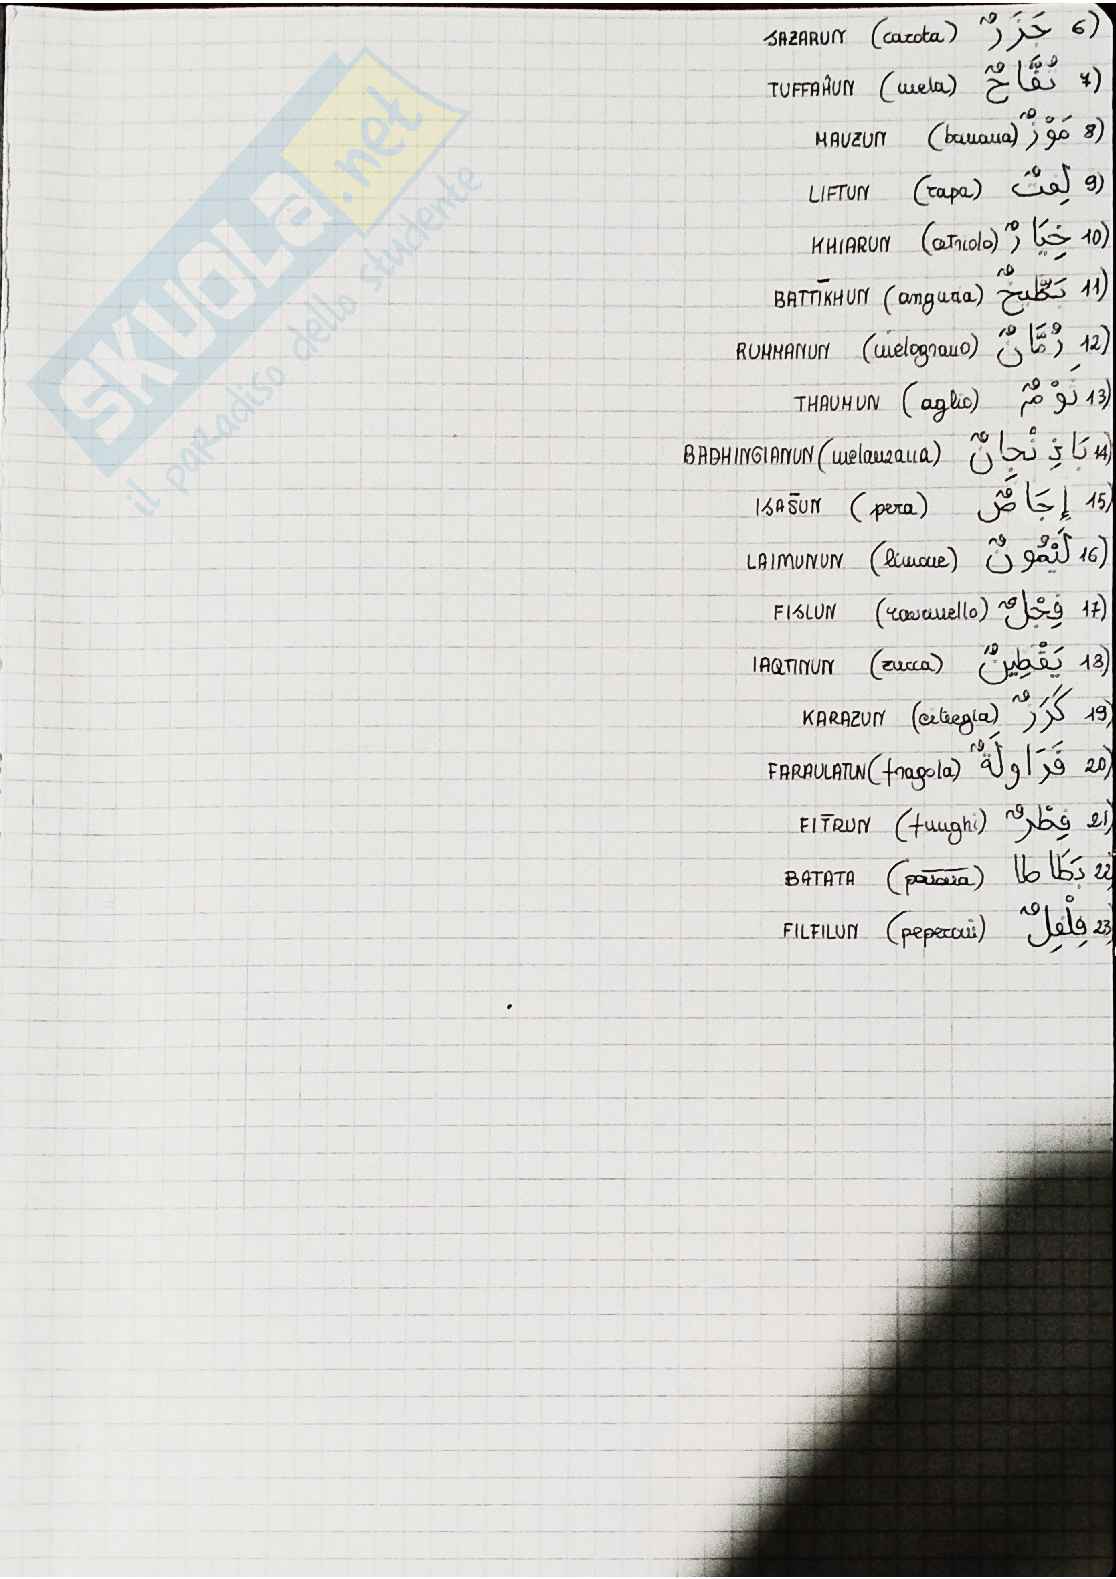 6) جَزَرٌ (carota) JAZARUN
7) تُفَّاحٌ (mela) TUFFAHUN
8) مَوْزٌ (banana) MAUZUN
9) لِفتٌ (rapa) LIFTUN
10) خِيَارٌ (cetriolo) KHIARUN
11) بَطِّيخٌ (anguria) BATTĪKHUN
12) رُمَّانٌ (melograno) RUMMANUN
13) ثَوْمٌ (aglio) THAUMUN
14) بَاذِنْجانٌ (melanzana) BADHINGIANUN
15) إِجَاصٌ (pera) IJAS̄UN
16) لَيْمُونٌ (limone) LAIMUNUN
17) فِجْلٌ (ravanello) FIJLUN
18) يَقْطِينٌ (zucca) IAQTINUN
19) كَرَزٌ (ciliegia) KARAZUN
20) فَرَاولَةٌ (fragola) FARAULATUN
21) فِطْرٌ (funghi) FIT̄RUN
22) بَطَاطا BATATA
23) فِلْفِلٌ (peperoni) FILFILUN
SKUOLA.net
il paradiso dello studente